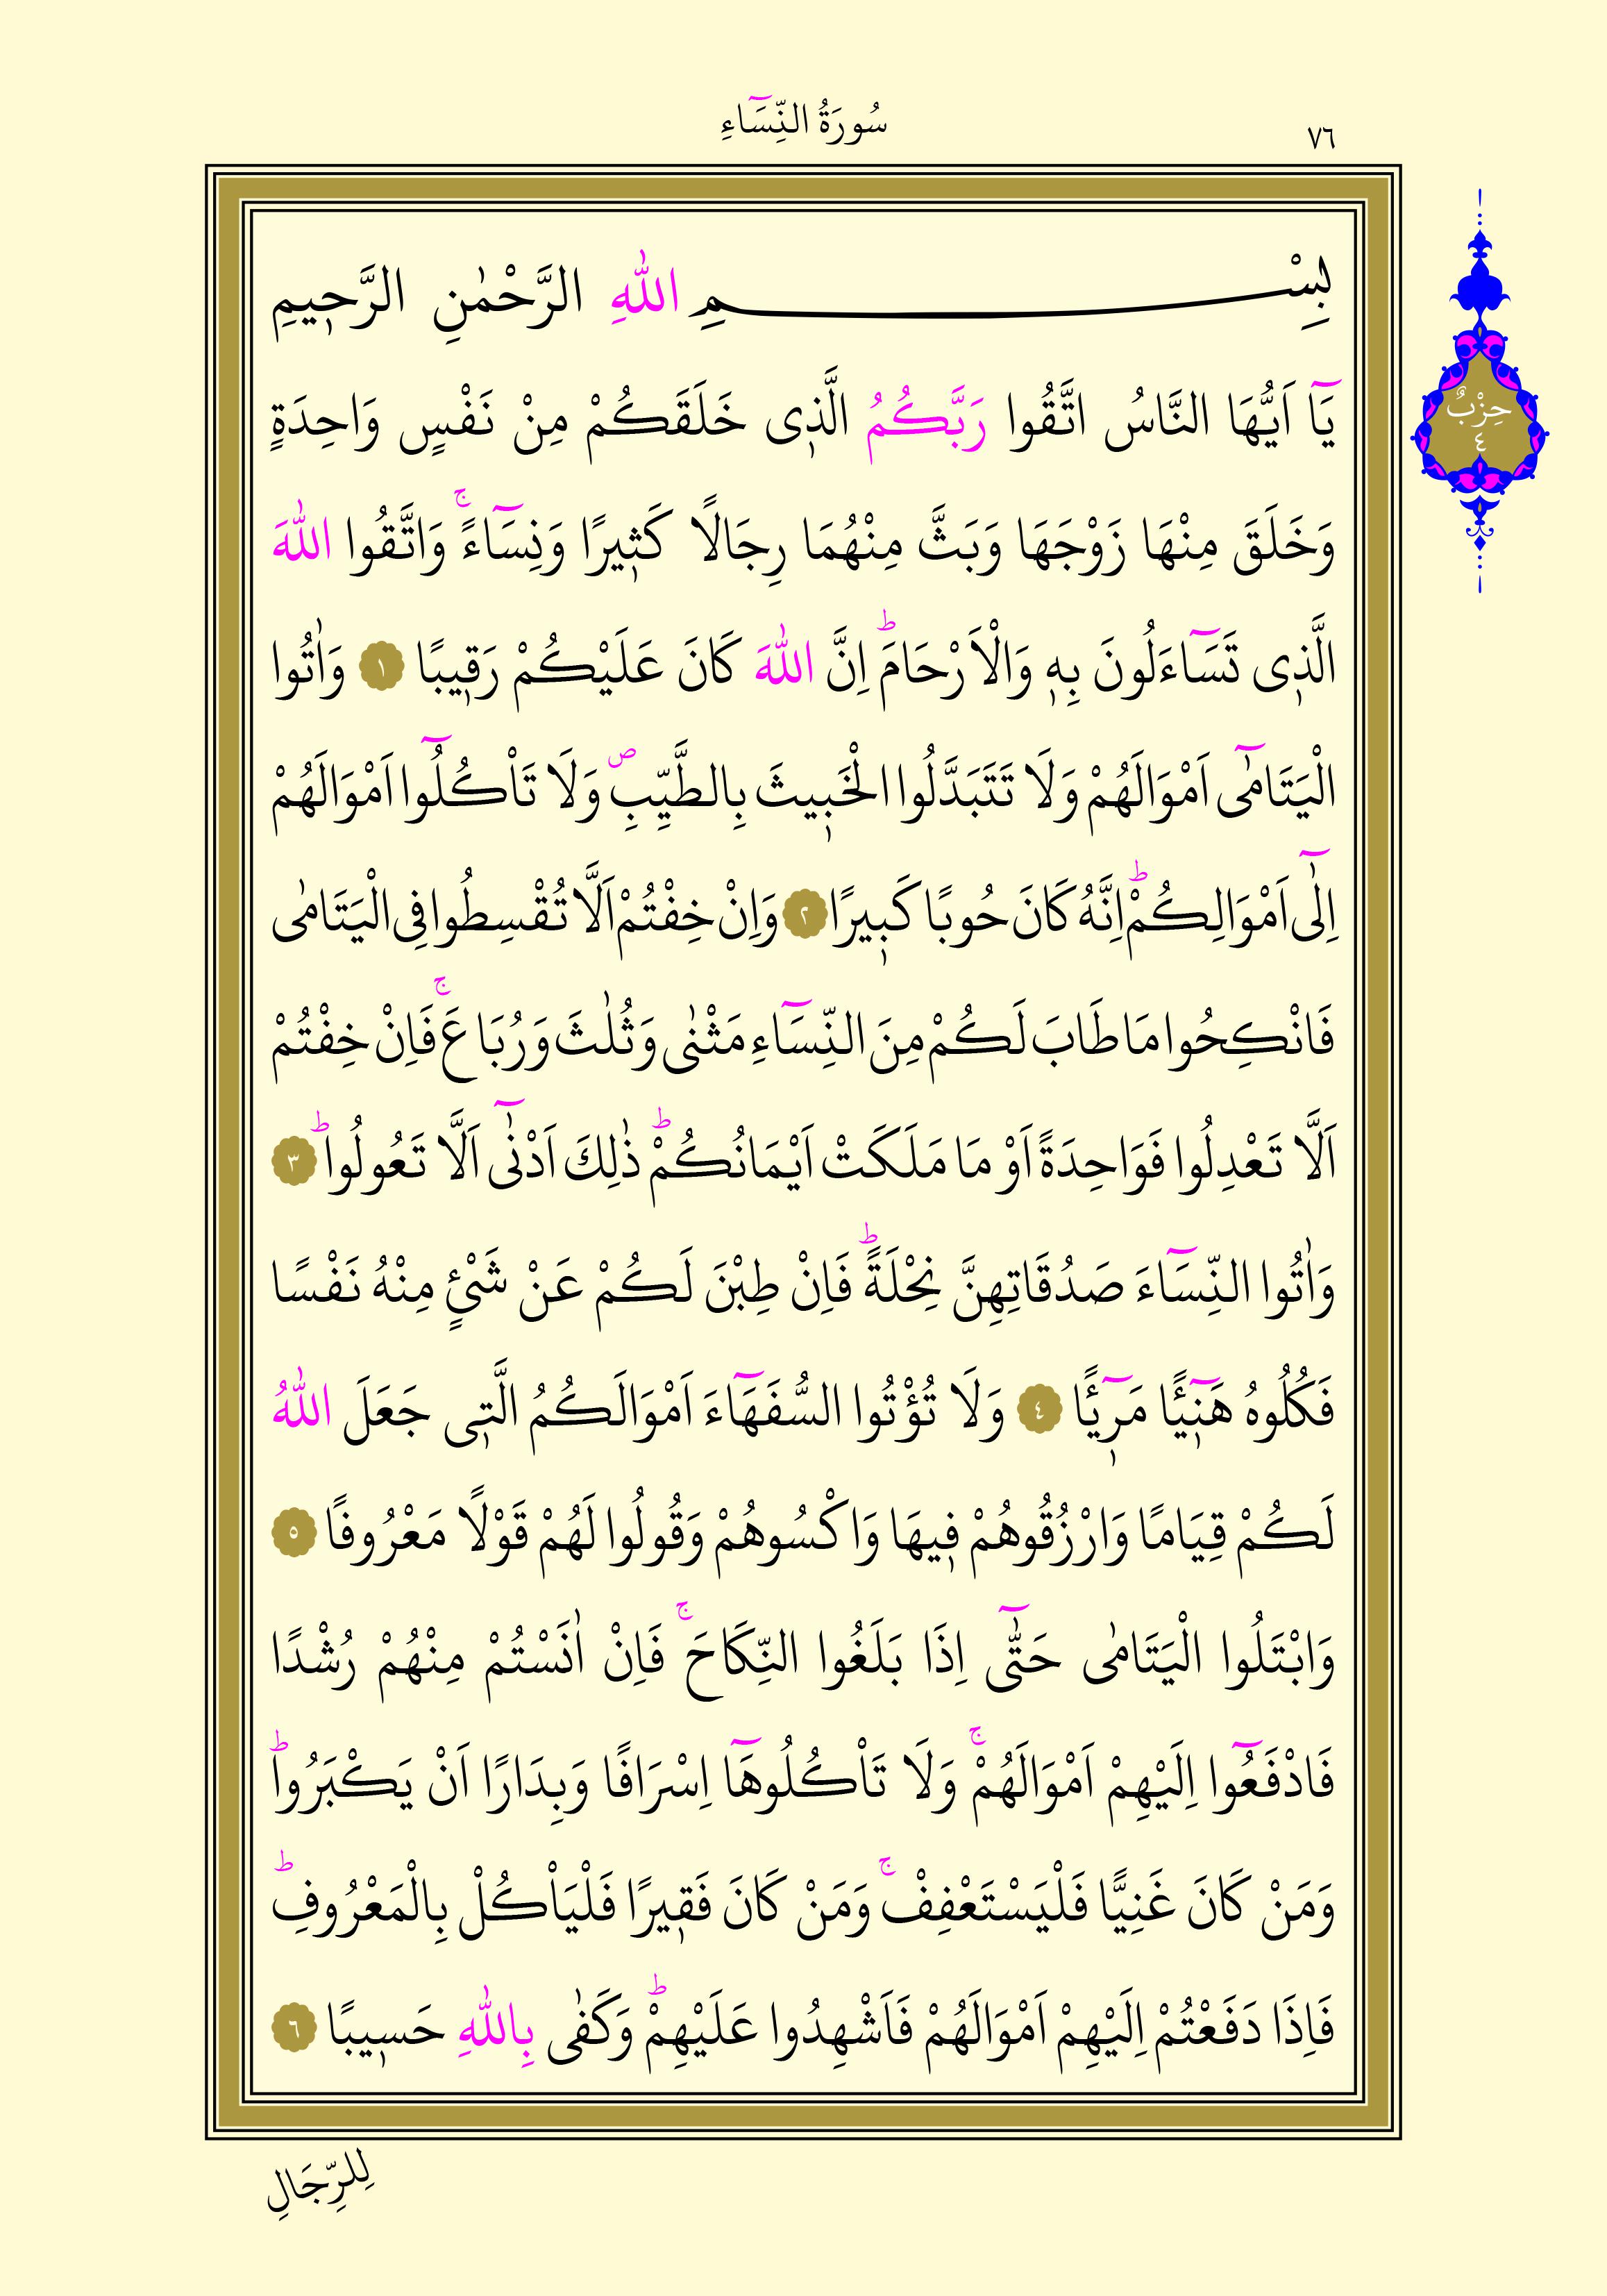 سُورَةُ النِّسَٓاءِ
٧٦
حِزْبٌ
٤
بِسْمِ اللّٰهِ الرَّحْمٰنِ الرَّح۪يمِ
يَٓا اَيُّهَا النَّاسُ اتَّقُوا رَبَّكُمُ الَّذ۪ى خَلَقَكُمْ مِنْ نَفْسٍ وَاحِدَةٍ
وَخَلَقَ مِنْهَا زَوْجَهَا وَبَثَّ مِنْهُمَا رِجَالًا كَث۪يرًا وَنِسَٓاءًۚ وَاتَّقُوا اللّٰهَ
الَّذ۪ى تَسَٓاءَلُونَ بِه۪ وَالْاَرْحَامَۜ اِنَّ اللّٰهَ كَانَ عَلَيْكُمْ رَق۪يبًا ١ وَاٰتُوا
الْيَتَامٰٓى اَمْوَالَهُمْ وَلَا تَتَبَدَّلُوا الْخَب۪يثَ بِالطَّيِّبِۖ وَلَا تَاْكُلُٓوا اَمْوَالَهُمْ
اِلٰٓى اَمْوَالِكُمْۜ اِنَّهُ كَانَ حُوبًا كَب۪يرًا ٢ وَاِنْ خِفْتُمْ اَلَّا تُقْسِطُوا فِى الْيَتَامٰى
فَانْكِحُوا مَا طَابَ لَكُمْ مِنَ النِّسَٓاءِ مَثْنٰى وَثُلٰثَ وَرُبَاعَۚ فَاِنْ خِفْتُمْ
اَلَّا تَعْدِلُوا فَوَاحِدَةً اَوْ مَا مَلَكَتْ اَيْمَانُكُمْۜ ذٰلِكَ اَدْنٰٓى اَلَّا تَعُولُواۜ ٣
وَاٰتُوا النِّسَٓاءَ صَدُقَاتِهِنَّ نِحْلَةًۜ فَاِنْ طِبْنَ لَكُمْ عَنْ شَىْءٍ مِنْهُ نَفْسًا
فَكُلُوهُ هَن۪ٓيـًٔا مَر۪ٓيـًٔا ٤ وَلَا تُؤْتُوا السُّفَهَٓاءَ اَمْوَالَكُمُ الَّت۪ى جَعَلَ اللّٰهُ
لَكُمْ قِيَامًا وَارْزُقُوهُمْ ف۪يهَا وَاكْسُوهُمْ وَقُولُوا لَهُمْ قَوْلًا مَعْرُوفًا ٥
وَابْتَلُوا الْيَتَامٰى حَتّٰٓى اِذَا بَلَغُوا النِّكَاحَۚ فَاِنْ اٰنَسْتُمْ مِنْهُمْ رُشْدًا
فَادْفَعُٓوا اِلَيْهِمْ اَمْوَالَهُمْۚ وَلَا تَاْكُلُوهَٓا اِسْرَافًا وَبِدَارًا اَنْ يَكْبَرُواۜ
وَمَنْ كَانَ غَنِيًّا فَلْيَسْتَعْفِفْۚ وَمَنْ كَانَ فَق۪يرًا فَلْيَاْكُلْ بِالْمَعْرُوفِۜ
فَاِذَا دَفَعْتُمْ اِلَيْهِمْ اَمْوَالَهُمْ فَاَشْهِدُوا عَلَيْهِمْۜ وَكَفٰى بِاللّٰهِ حَس۪يبًا ٦
لِلرِّجَالِ